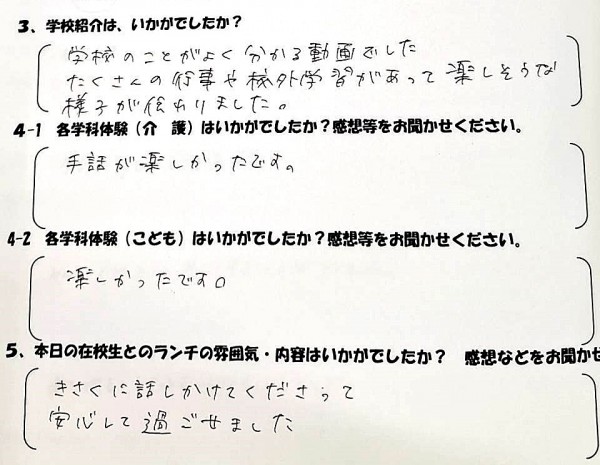 3、学校紹介は、いかがでしたか？
学校のことがよく分かる動画でした
たくさんの行事や校外学習があって楽しそうな
様子が伝わりました。
4-1 各学科体験（介　護）はいかがでしたか？感想等をお聞かせください。
手話が楽しかったです。
4-2 各学科体験（こども）はいかがでしたか？感想等をお聞かせください。
楽しかったです。
5、本日の在校生とのランチの雰囲気・内容はいかがでしたか？　感想などをお聞かせ
きさくに話しかけてくださって
安心して過ごせました